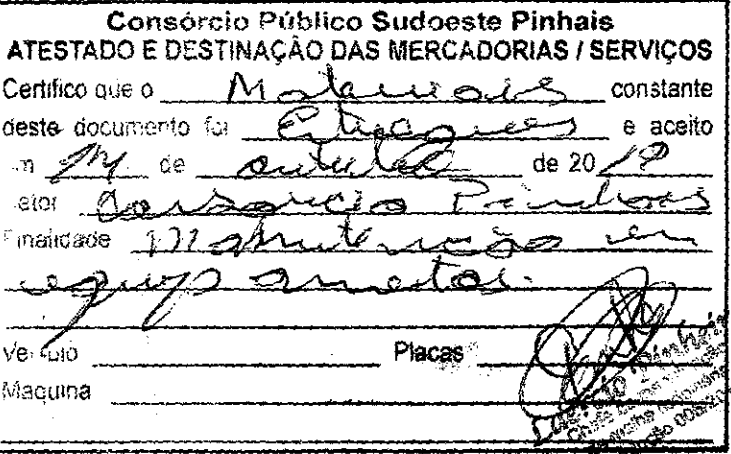 Consórcio Público Sudoeste Pinhais
ATESTADO E DESTINAÇÃO DAS MERCADORIAS / SERVIÇOS
Certifico que o Materiais constante
deste documento foi Entregues e aceito
de outubro de 20 19
Consórcio Pinhais
Finalidade Manutenção em
equipamentos.
Veículo Placas
Maquina